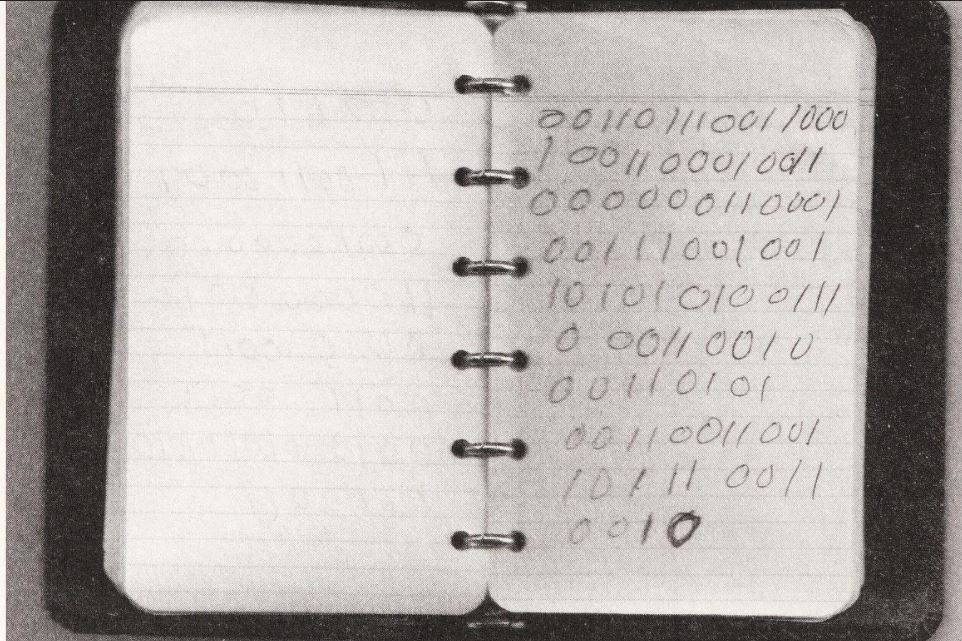 001101110011000
1 001100010011
000000110001
001111001001
10101 010 0111
0 0011 0010
00110101
00110011001
10111 0011
0010